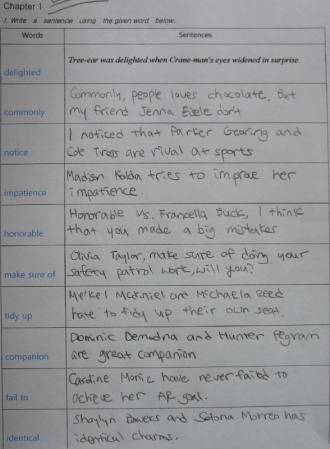 Chapter 1
1. Write a sentence using the given word below.
Words Sentences
delighted Tree-ear was delighted when Crane-man's eyes widened in surprise.
Commonly, people loves chocolate, But
commonly my friend Jenna Esele don't
I noticed that Parker Gearing and
notice Cole Tross are rival at sports
Madison Kolda tries to improve her
impatience impatience.
Honorable Ms. Francella Buck, I think
honorable that you made a big mistakes
Olivia Taylor, make sure of doing your
make sure of safety patrol work, will you?
Mckel McDaniel and Michaela Reed
tidy up have to tidy up their own seat.
Dominic and Hunter Pegram
companion are great companion
Caroline Moric have never failed to
fail to achieve her AR goal.
Shaylyn Bowers and Morreo has
identical identical charms.